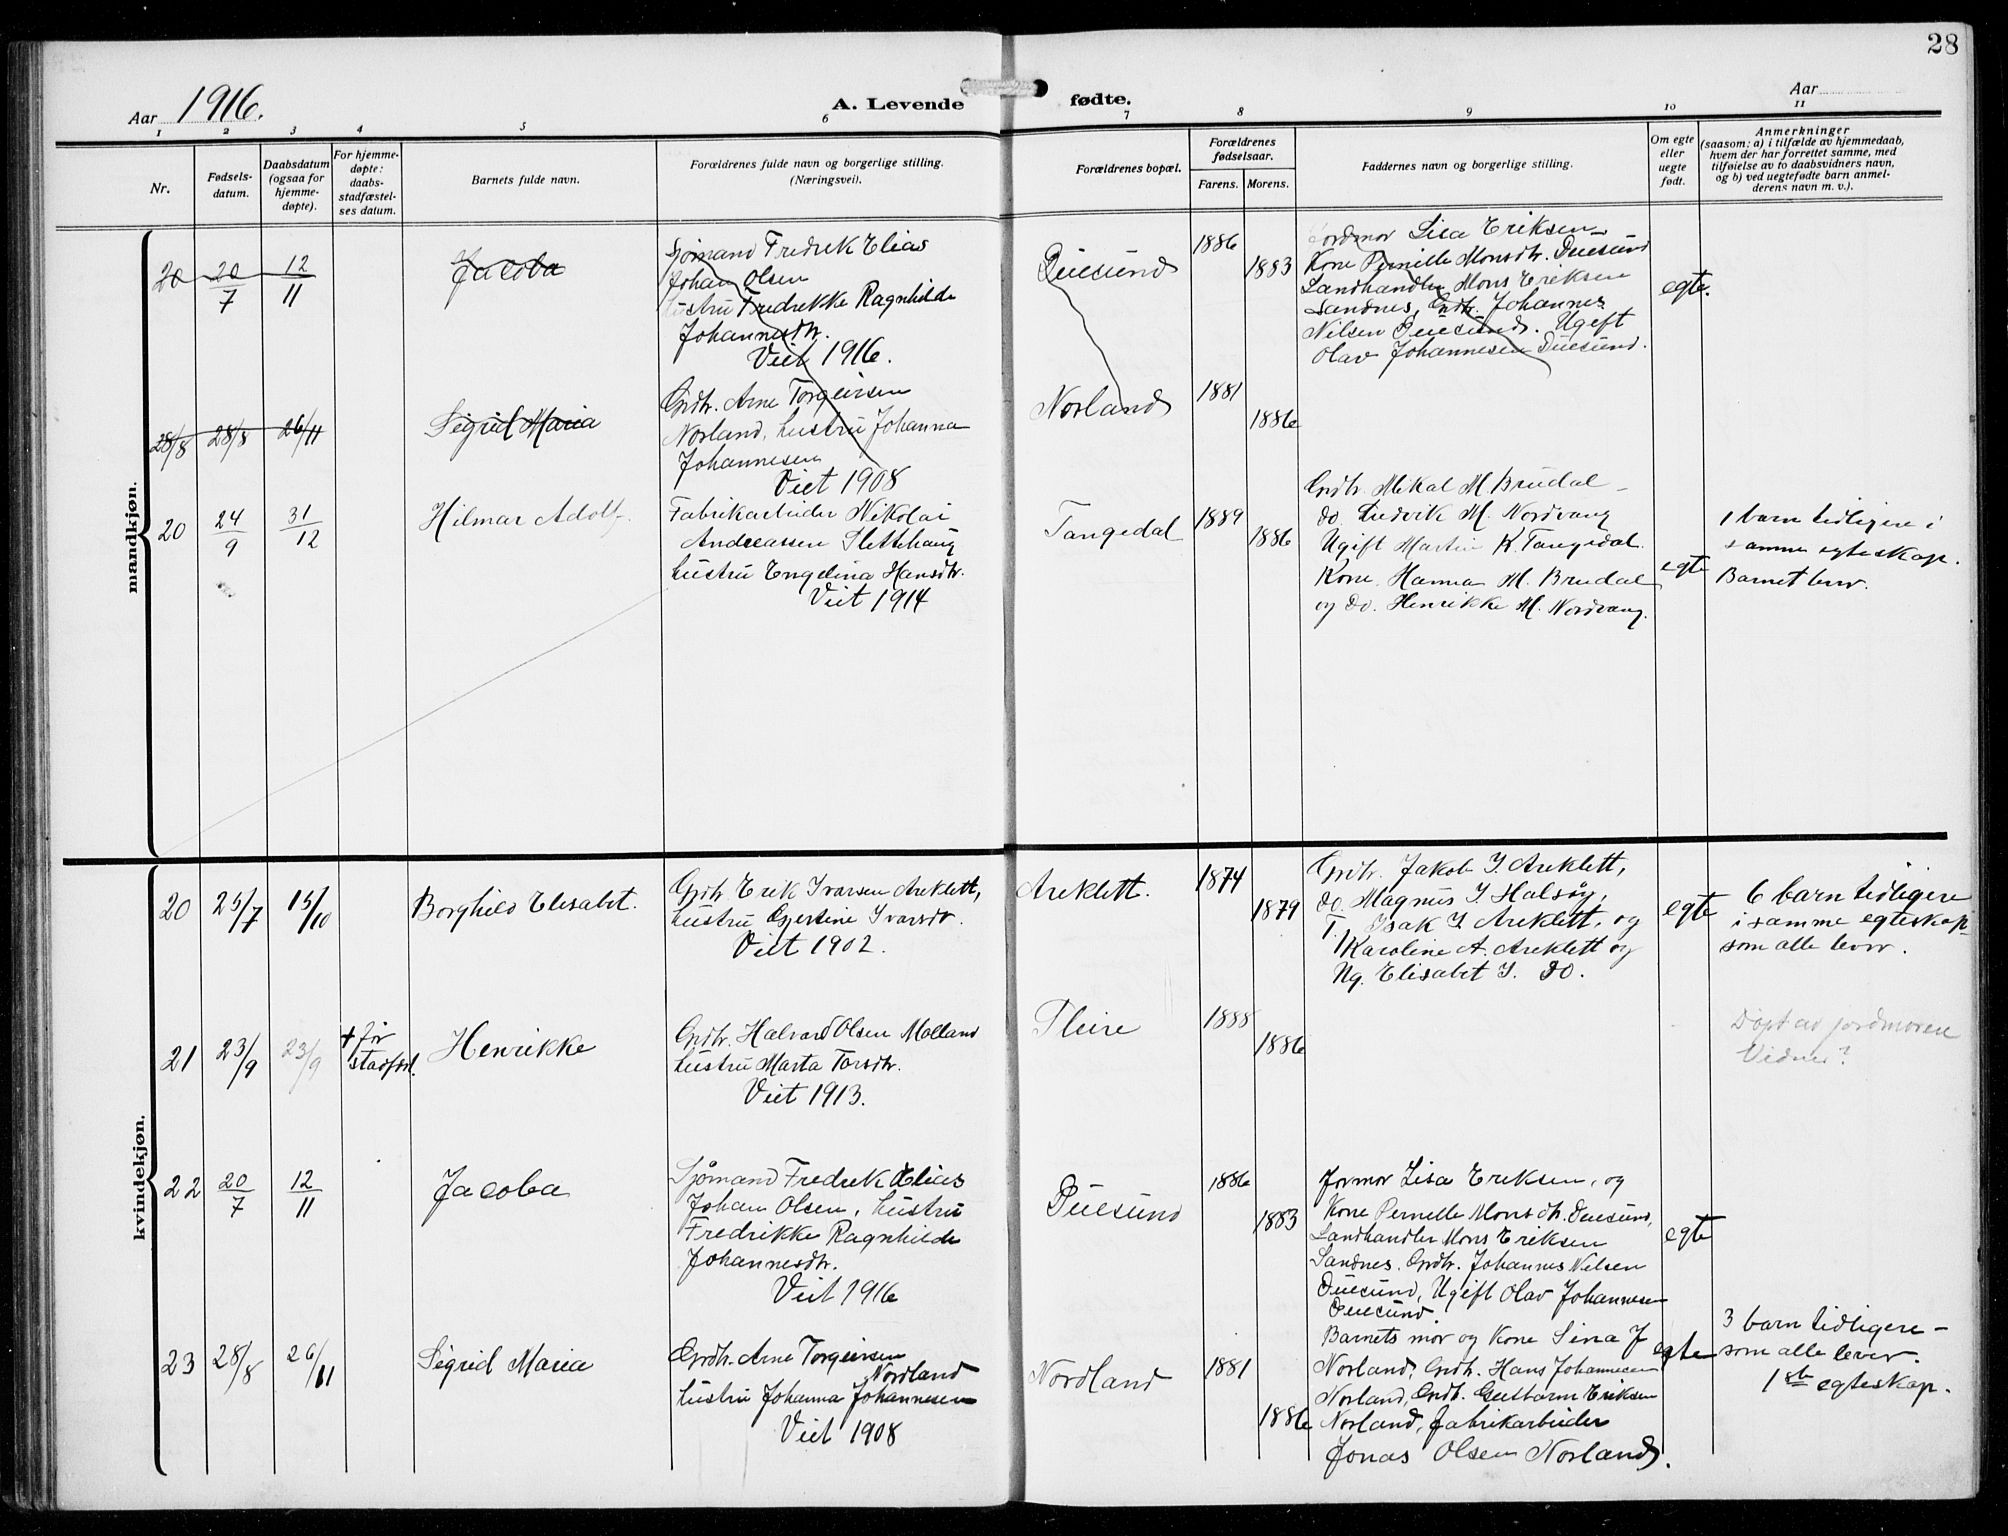 28
Aar 1916.
A. Levende fødte.
Aar
1 2 3 4 5 6 7 8 9 10 11
Nr.
Fødsels-
datum.
Daabsdatum
(ogsaa for
hjemme-
døpte).
For hjemme-
døpte:
daabs-
stadfæstel-
ses datum.
Barnets fulde navn.
Forældrenes fulde navn og borgerlige stilling.
(Næringsvei).
Forældrenes bopæl.
Forældrenes
fødselsaar.
Farens. Morens.
Faddernes navn og borgerlige stilling.
Om egte
eller
uegte
født.
Anmerkninger
(saasom: a) i tilfælde av hjemmedaab,
hvem der har forrettet samme, med
tilføielse av to daabsvidners navn,
og b) ved uegtefødte barn anmel-
derens navn m. v.).
mandkjøn.
20 20/7 12/11 Jacoba
Sjømand Fredrik Elias
Johan Olsen
hustru Fredrikke Ragnhilde
Johannesdtr.
Viet 1916.
Duesund 1886 1883
Jordmor Lisa Eriksen
Kone Pernille Monsdtr. Duesund
Landhandler Mons Eriksen
Sandnes, Grdbr. Johannes
Nilsen Duesund. Ugift
Olav Johannesen Duesund.
egte.
28/8 28/8 26/11 Sigrid Maria
Grdbr. Arne Torgeirsen
Norland, hustru Johanna
Johannesen
Viet 1908
Norland 1881 1886
20 24/9 31/12 Hilmar Adolf
Fabrikarbeider Nikolai
Andreassen Slettehaug
hustru Engelina Hansdtr.
Viet 1914
Tangedal 1889 1886
Grdbr. Mikal M. Brudal
do. Ludvik M. Nordvang
Ugift Martin K. Tangedal
Kone Hanna M. Brudal
og do. Henrikke M. Nordvang.
egte
1 barn tidligere i
samme egteskap.
Barnet lever.
kvindekjøn.
20 25/7 15/10 Borghild Elisabet.
Grdbr. Erik Ivarsen Areklett,
hustru Gjertine Ivarsdtr.
Viet 1902.
Areklett. 1874 1879
Grdbr. Jakob I. Areklett,
do. Magnus I. Halsøy,
T. Isak I. Areklett, og
Karoline A. Areklett og
Ug. Elisabet I. do.
egte
6 barn tidligere
i samme egteskap
som alle lever.
21 23/9 23/9 + før
stadfest. Henrikke
Grdbr. Halvard Olsen Molland
hustru Marta Torsdtr.
Viet 1913.
1888 1886
Døpt av jordmoren
Vidner?
22 20/7 12/11 Jacoba
Sjømand Fredrik Elias
Johan Olsen, hustru
Fredrikke Ragnhilde
Johannesdtr.
Viet 1916
Duesund 1886 1883
Jormor Lisa Eriksen, og
Kone Pernelle Monsdtr. Duesund,
Landhandler Mons Eriksen
Sandnes. Grdbr. Johannes Nilsen
Duesund, Ugift Olav Johannesen
Duesund.
egte
23 28/8 26/11 Sigrid Maria
Grdbr. Arne Torgeirsen
Nordland
hustru Johanna Johannesen
Viet 1908
Nordland 1881 1886
Barnets mor og Kone Sina J
Norland, Grdbr. Hans Johannesen
Norland, Grdb. Guttorm Eriksen
Norland, fabrikarbeider
Jonas Olsen Norland.
egte
3 barn tidligere –
som alle lever.
1ste egteskap.